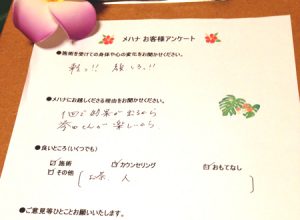 メハナ お客様アンケート
●施術を受けての身体や心の変化をお聞かせください。
軽っ!! 放しろっ!!
●メハナにお越しくださる理由をお聞かせください。
1回で効果がでるから
が楽しいから
●良いところ(いくつでも)
☑施術 ☑カウンセリング ☑おもてなし
☑その他 ( お茶、人 )
●ご意見等ひとことお願いいたします。